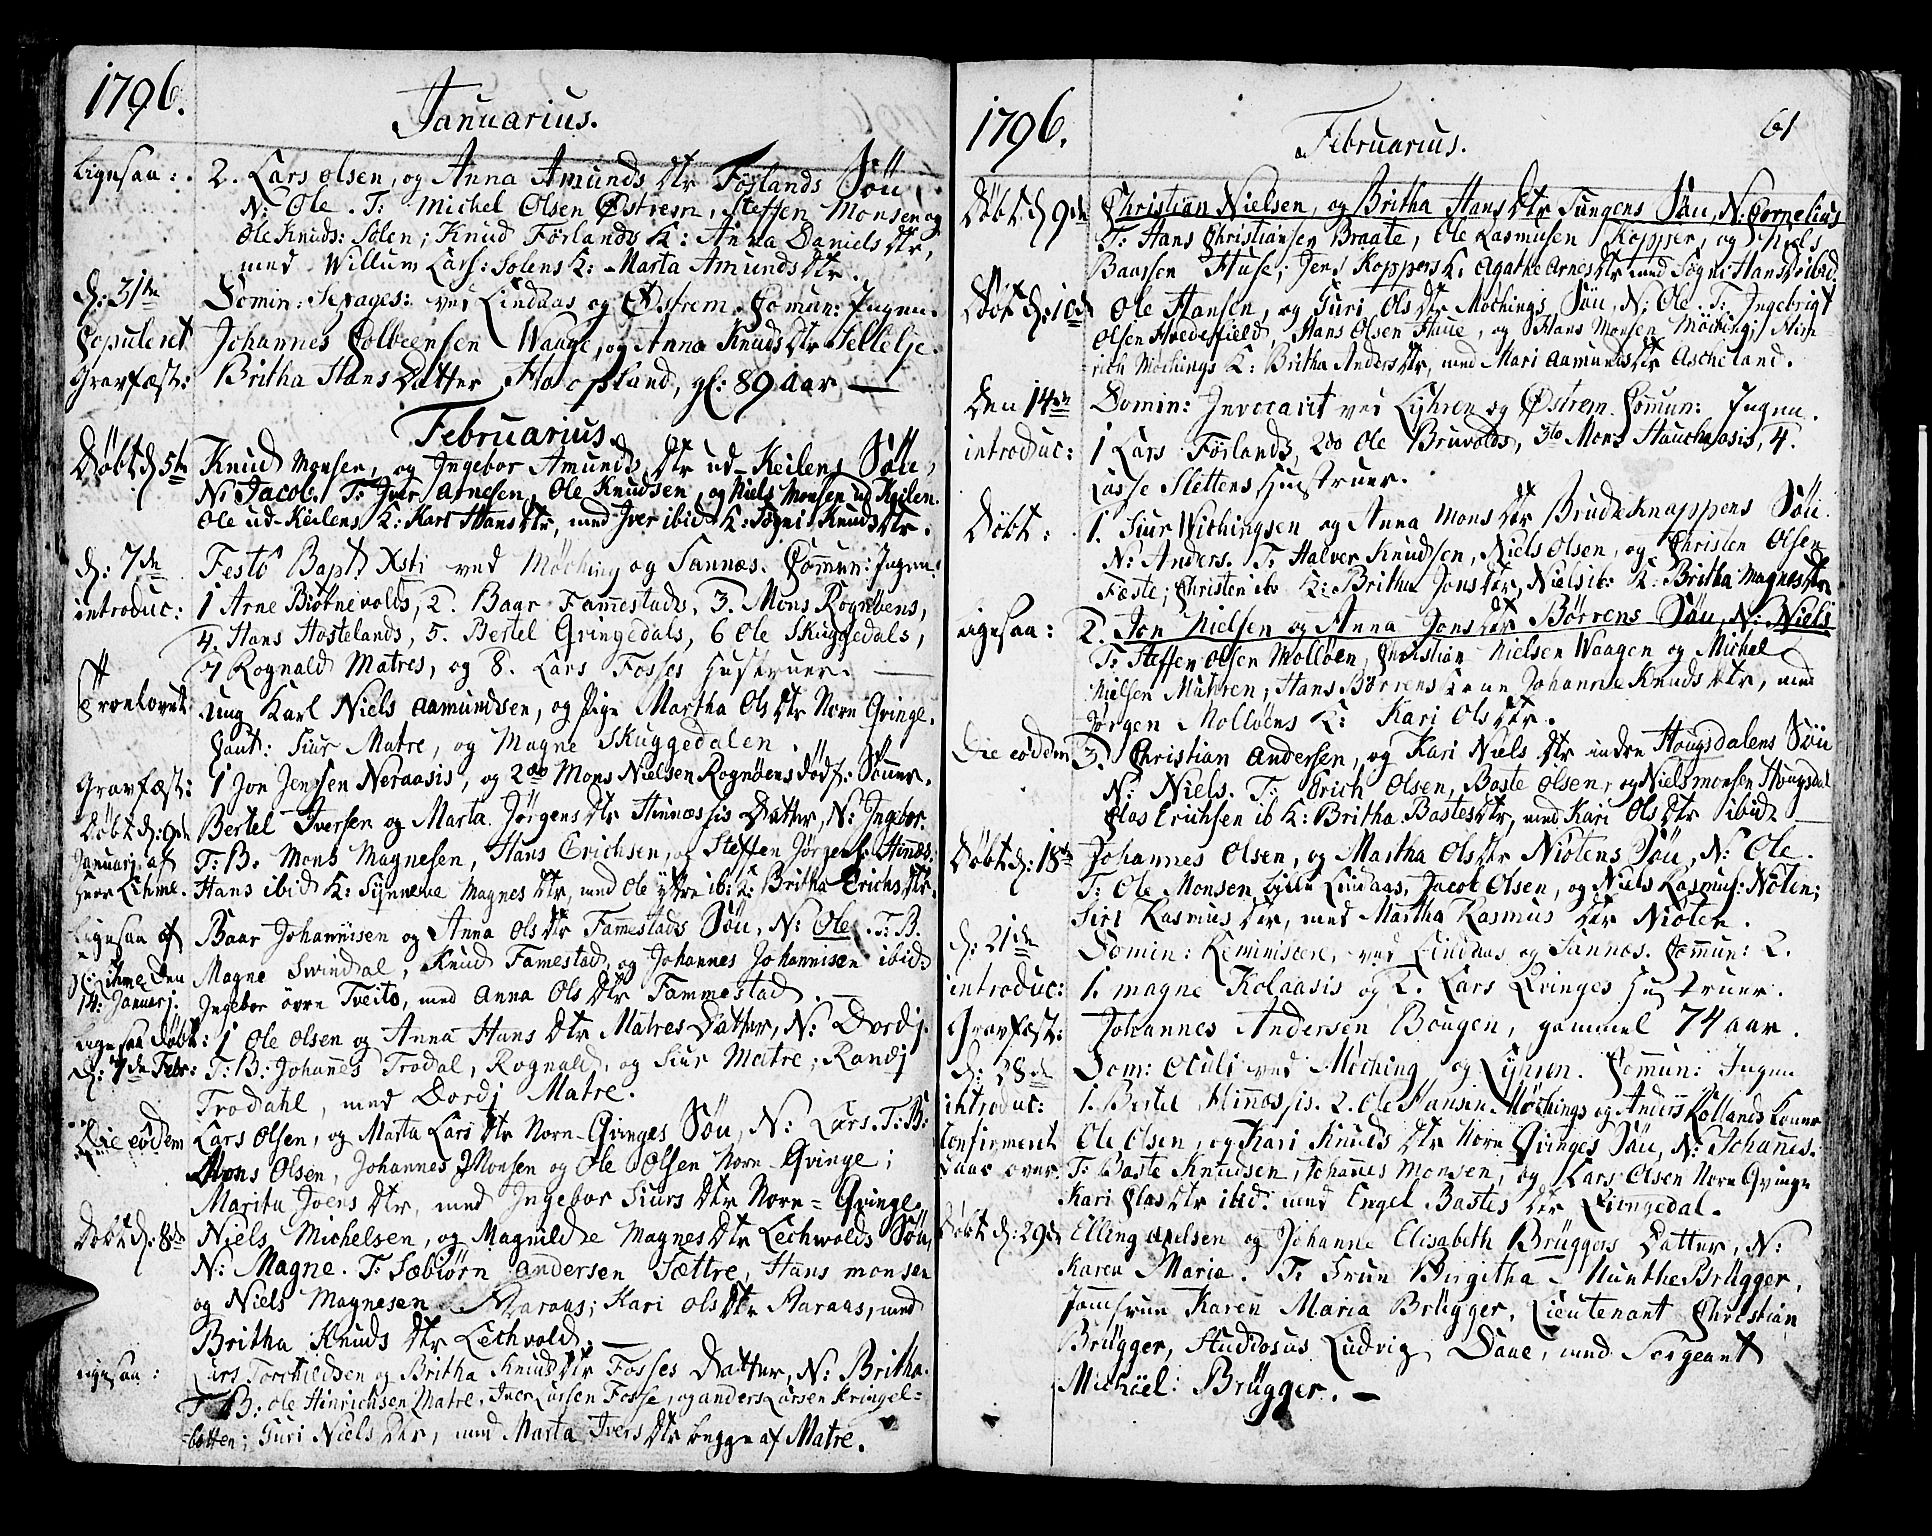 1796.
Januarius.
Ligesaa: 2. Lars Olsen, og Anna Amunds Dtr Förlands Söu
N: Ole. T: Michel Olsen Østrem, Steffen Monsen og
Ole Knuds: Solen; Knud Förlands K: Anna Daniels Dtr,
med Willum Lars: Solens K: Marta Amunds Dtr.
d: 31te Domin: Sepages: ved Lindaas og Østrem. Comun: Ingen.
Copuleret Johannes Colbeensen Waage, og Anna Knuds Dtr Tellelje.
Gravfæst: Britha Hans Datter Hopsland, gl: 89 aar —
Februarius.
Döbt d: 5te Knud Monsen, og Ingebor Amunds Dtr ud-Keilens Söu,
N: Jacob. T: Iver Arnesen, Ole Knudsen, og Niels Monsen ud Keilen.
Ole ud-Keilens K: Kari Hans Dtr, med Iver ibid K: Sögni Knuds Dtr.
d: 7de Festô Bapt: Xsti ved Möching og Sannæs. Comun: Ingen.
introduc: 1 Arne Biötnevolds, 2. Baar Famestads, 3. Mons Rognöens,
4. Hans Hostelands, 5. Bertel Qvingedals, 6 Ole Skuggedals,
7 Rognald Matres, og 8. Lars Fosses Hustruer. —
Troelovet Ung Karl Niels Aamundsen, og Pige Martha Ols Dtr Norn Qvinge.
Caut: Siur Matre, og Magne Skuggedalen.
Gravfæst: 1 Jon Jensen Neraasis, og 2do Mons Nielsen Rognöens dödf: Sönner.
Döbt d: 6de Bertel Iversen og Marta Jörgens Dtr Hinnæssis Datter, N: Ingebor.
Januarj af T: B. Mons Magnesen, Hans Erichsen, og Steffen Jörgens: Hinæs.
Herr Lihme. Hans ibid K: Synneve Magnes Dtr, med Ole yttre ib: K: Britha Erichs Dtr.
Ligesaa af Baar Johannisen og Anna Ols Dtr Famestads Söu, N: Ole. T: B.
H: Lihme, den Magne Swindal, Knud Famestad, og Johannes Johannisen ibid:
14. Januarj. Ingebor övre Tveito, med Anna Ols Dtr Fammestad —
Ligesaa döbt: 1 Ole Olsen og Anna Hans Dtr Matres Datter, N: Dordj.
d: 7de Febr: T: B: Johanes Trodal, Rognald, og Siur Matre; Randj
Trodahl, med Dordj Matre.
Die eôdem Lars Olsen, og Marta Lars Dtr Norn-Qvinges Söu, N: Lars. T: B:
Mons Olsen, Johannes Monsen og Ole Olsen Norn-Qvinge;
Marita Joens Dtr, med Ingebor Siurs Dtr Norn-Qvinge.
Döbt d: 8de Niels Michelsen, og Magnilde Magnes Dtr Lechvolds Söu,
N: Magne. T: Sæbiörn Andersen Sættre, Hans Monsen
og Niels Magnesen Aaraas; Kari Ols Dtr Aaraas, med
Britha Knuds Dtr Lechvold. —
Ligesaa: Lars Torchildsen og Britha Knuds Dtr Fosses Datter, N: Britha.
T: B: Ole Hinrichsen Matre, Iver Larsen Fosse, og Anders Larsen Kringel=
=botten; Guri Niels Dtr, med Marta Ivers Dtr begge af Matre.
1796.
Februarius.
61
Döbt d: 9de Christian Nielsen, og Britha Hans Dtr Tungens Söu, N: Cornelius
T: Hans Christiansen Braate, Ole Rasmusen Kopper, og Niels
Baarsen Huse; Jens Koppers K: Agathe Arnes Dtr med Sögni Hans D: ibid.
Döbt d: 10de Ole Hansen, og Guri Ols Dtr Möchings Söu, N: Ole. T: Ingebrigt
Olsen Hvedefield, Hans Olsen Haue, og Hans Monsen Möching; Him=
rich Möchings K: Britha Anders Dtr, med Kari Aamunds Dtr Ascheland.
Den 14de Domin: Invocavit ved Lyhren og Østrem. Comun: Ingen.
introduc: 1 Lars Förlands, 2do Ole Bruvolds, 3tio Mons Hauchaasis, 4.
Lasse Slettens Hustruer.
Döbt: 1. Siur Wichingsen og Anna Mons Dtr Brudeknappens Söu.
N: Anders. T: Halver Knudsen, Niels Olsen, og Christen Olsen
Feste; Christen ib: K: Britha Jons Dtr, Niels ib: K: Britha Magnes Dtr.
Ligesaa: 2. Jon Nielsen og Anna Jons Dtr Börrens Söu, N: Niels
T: Steffen Olsen Molloen, Christian Nielsen Waagen og Michel
Nielsen Muhren; Hans Börrens Kone Johanne Knuds Dtr, med
Jörgen Mollöens K: Kari Ols Dtr.
Die eôdem 3. Christian Andersen, og Kari Niels Dtr indre Hougsdalens Söu
N: Niels. T: Erich Olsen, Baste Olsen, og Niels Monsen Hougsdal
Clas Erichsen ib K: Britha Bastes Dtr, med Kari Ols Dtr ibid —
Döbt d: 18de Johannes Olsen, og Martha Ols Dtr Niötens Söu, N: Ole.
T: Ole Monsen Lille Lindaas, Jacob Olsen, og Niels Rasmus: Nöten;
Siri Rasmus Dtr, med Martha Rasmus Dtr Niöten.
d: 21de Domin: Reminiscere, ved Lindaas og Sannæs. Comun: 2.
introduc: 1. Magne Kolaasis og 2. Lars Qvinges Hustruer.
Gravfæst: Johannes Andersen Bougen, gammel 74 aar.
d: 28de Dom: Oculi ved Möching og Lyhren. Comun: Ingen
introduc: 1. Bertel Hinnæssis. 2. Ole Hansen Möchings og Anders Kollands Koner
Confirmeret Ole Olsen, og Kari Knuds Dtr Norn Qvinges Söu, N: Johanes.
Daab over T: Baste Knudsen, Johanes Monsen, og Lars Olsen Norn Qvinge
Kari Clas Dtr ibid: med Engel Bastes Dtr Livngedal.
Döbt d: 29de Elling Axelsen og Johanne Elisabeth Brüggers Datter, N:
Karen Maria. T: Frue Birgitha Munthe Brügger,
Jomfrue Karen Maria Brügger, Lieutenant Christian
Brügger, Studiosus Ludvig Daae, med Sergeant
Michäel: Brügger. —